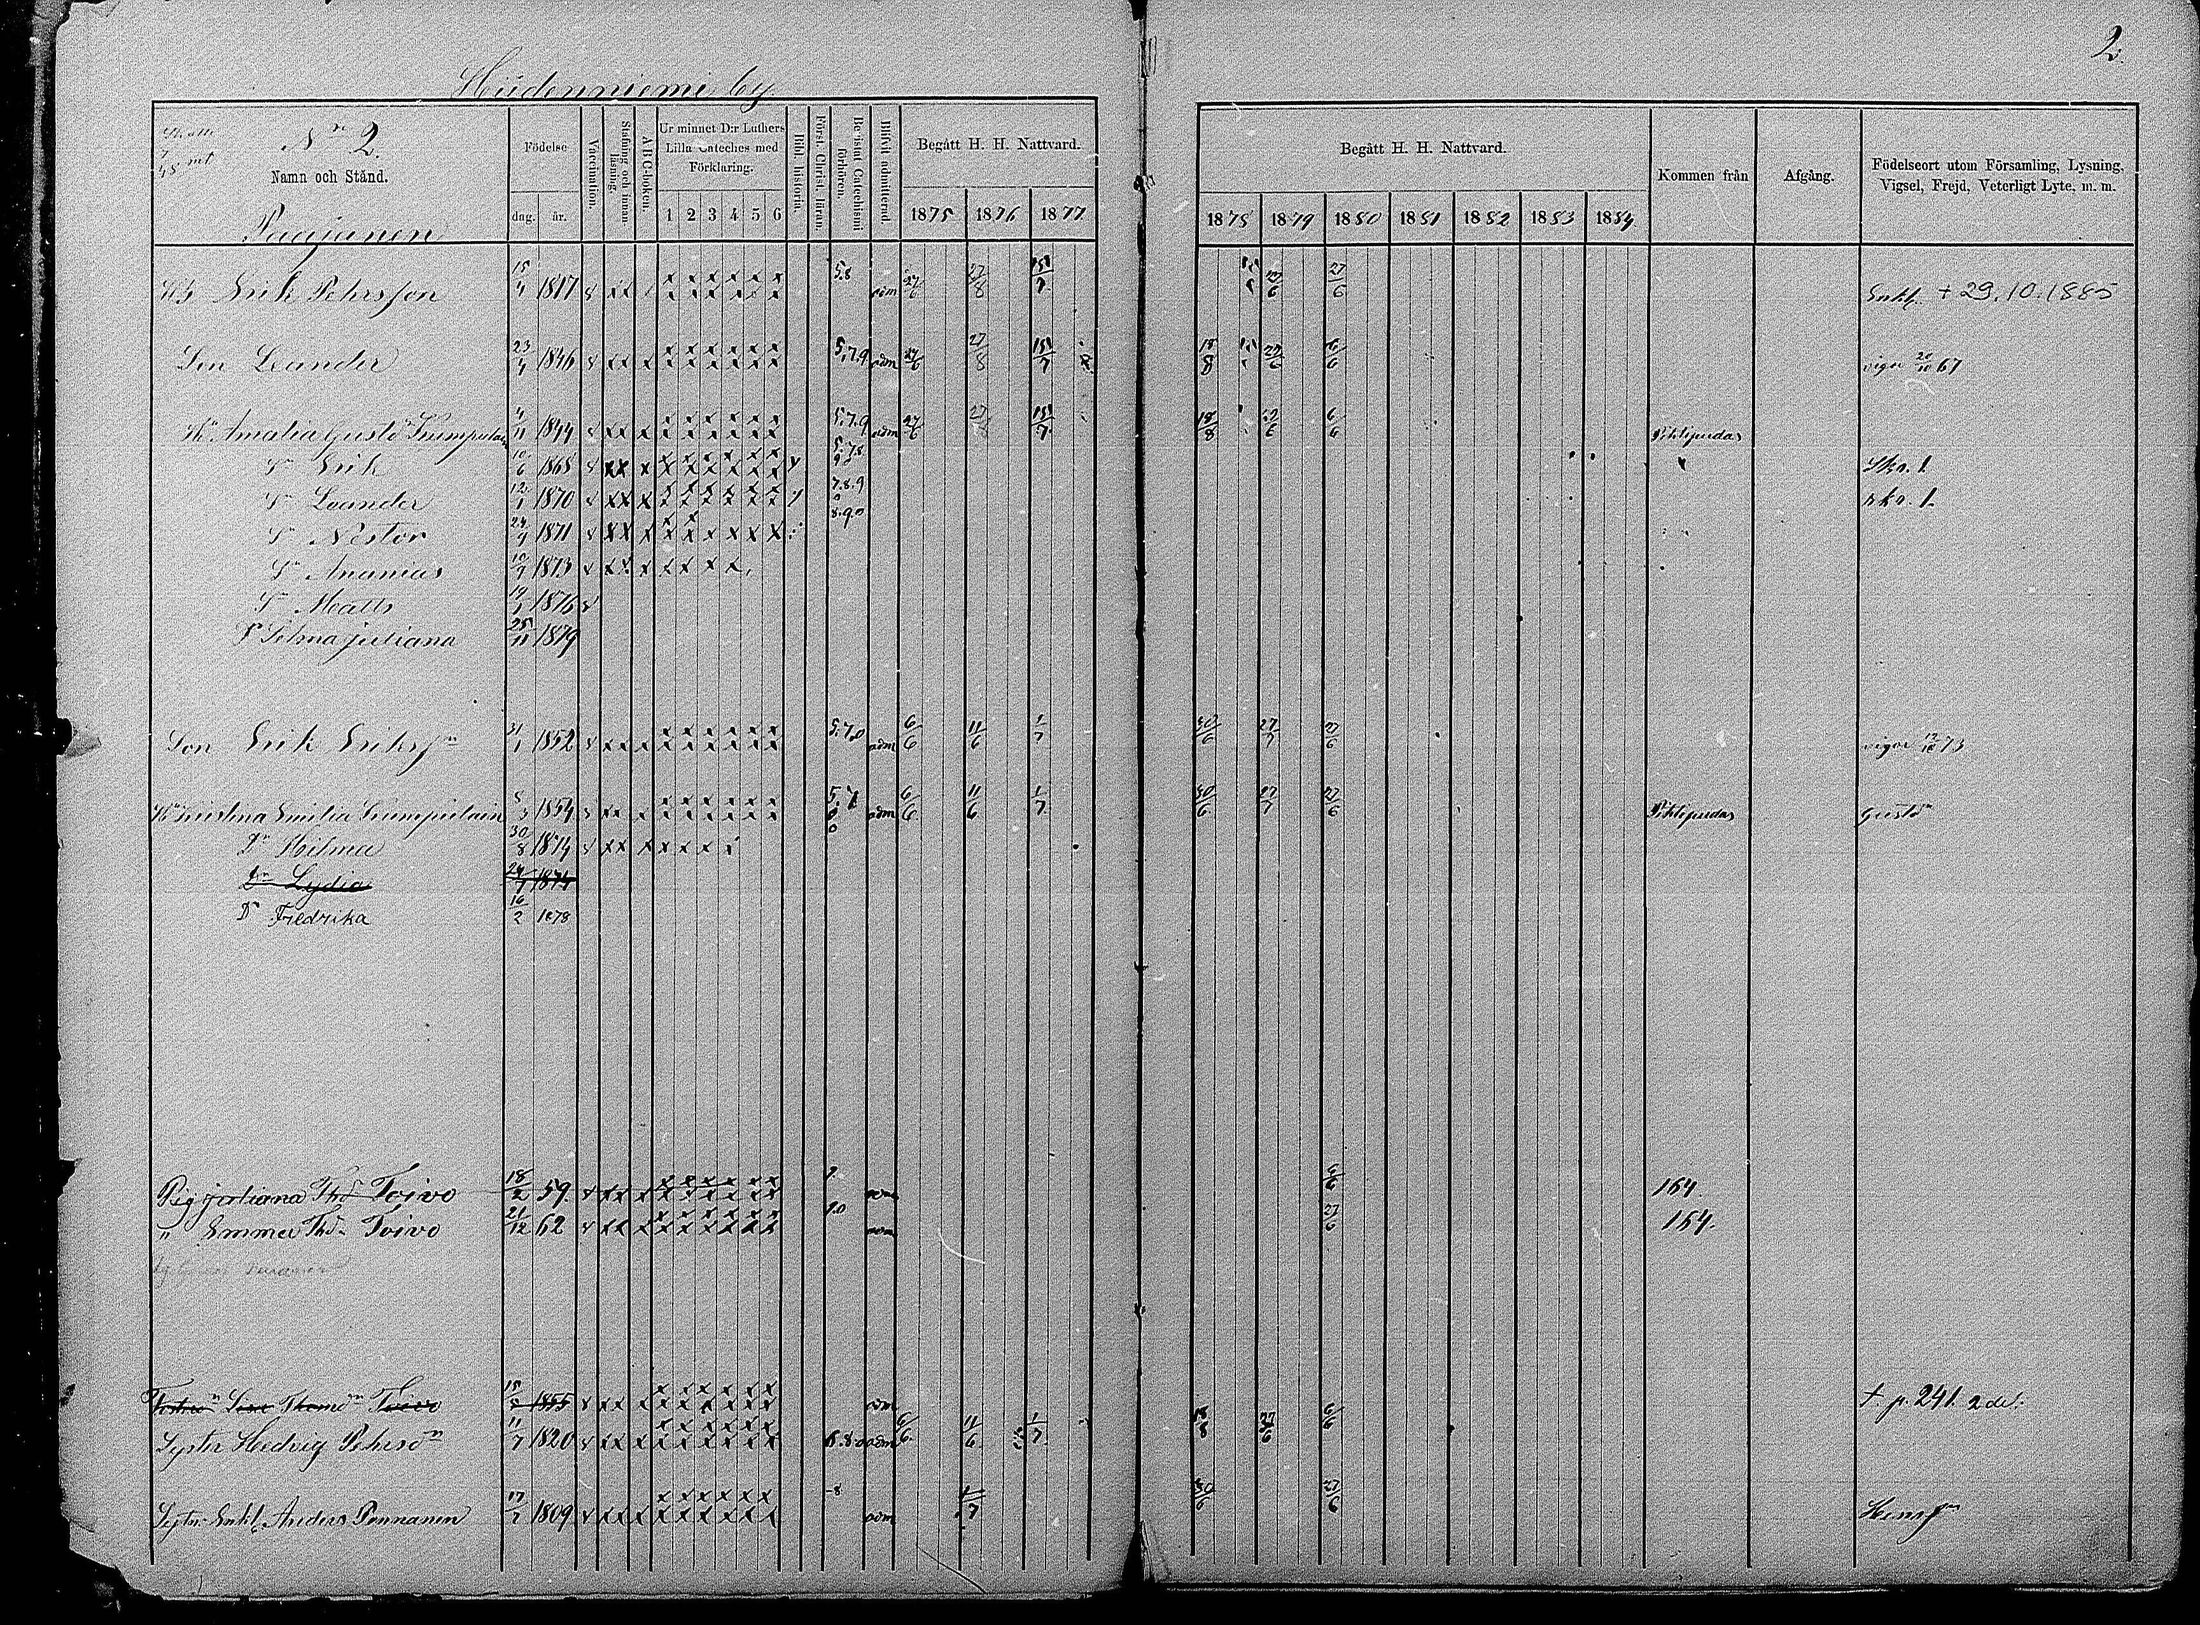 2.
Hiidenniemi by
No 2.
Namn och Stånd.
Födelse
dag. år.
Vaccination.
Stafning och innanläsning.
A B C-boken.
Ur minnet D:r Luthers Lilla Cateches med Förklaring.
1 2 3 4 5 6
Bibl. historia.
Först. Christ. läran
Bevistat Catechismi förhören.
Blifvit admitterad.
Begått H. H. Nattvard.
1875 1876 1877
Begått H. H. Nattvard.
1878 1879 1880 1881 1882 1883 1884
Kommen från
Afgång.
Födelseort utom Församling, Lysning, Vigsel, Frejd, Veterligt Lyte, m. m.
Paajanen
Erik Pehrsson 15/4 1817 5.8 adm 27/6 27/8 15/7 27/6 27/6 Enkl. + 29.10.1885
Son Leander 23/4 1846 5.7.9 adm 27/6 27/8 15/7 18/8 27/6 6/6 vigde 20/10 67
Hu Amalia Gustd Kumpulain 4/11 1844 5.7.9 adm 27/6 27/8 15/7 18/8 27/6 6/6 Pihtipudas
Sn Erik 10/6 1868 5.7.8 9.0 Sko. 1.
Sn Leander 12/1 1870 7.8.9 0 sko. 1.
Sn Nestor 24/9 1871 8.9.0
Sn Ananias 10/7 1873
Sn Matts 19/1 1876
Dr Selma Juliana 25/11 1879
Son Erik Eriksson 31/1 1852 5.7.0 adm 6/6 11/6 1/7 30/6 27/7 27/6 vigde 12/10 73
Hu Kristina Emilia Kumpulain 5/3 1854 5.7 8 0 adm 6/6 11/6 1/7 30/6 27/7 27/6 Pihtipudas Gustd
Dr Hilma 30/8 1874
Dr Lydia 24/7 1874
Dr Fredrika 16/2 1878
Pig Juliana Thd Toivo 18/2 59. 9. adm 6/6 164.
" Emma Thd Toivo 21/12 62 9.0 adm 27/6 164.
Lisa Thomd Toivo 15/2 1855 adm 6/6 + p. 241. 2 del.
Syster Hedvig Pehrsdn 11/7 1820 6.8.0 adm 6/6 11/6 1/7 18/8 27/6
Syster Enkl. Anders Pennanen 17/7 1809 -8 adm 1/7 30/6 27/6 Henrsn